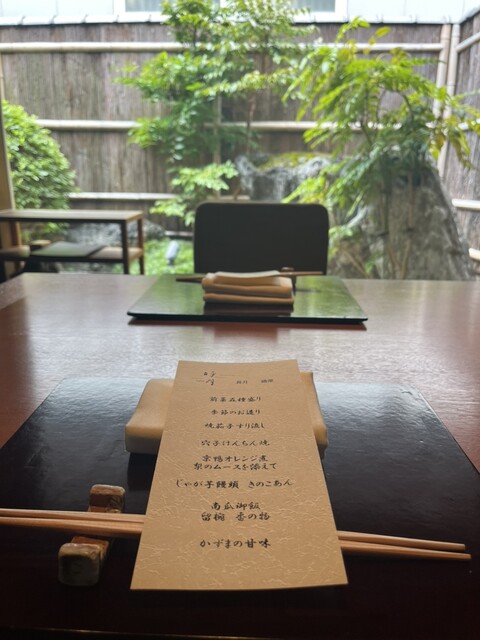 前菜五種盛り
季節のお造り
焼茄子すり流し
穴子けんちん焼
京鴨オレンジ煮
梨のムースを添えて
じゃが芋饅頭 きのこあん
南瓜御飯
留椀 香の物
かずまの甘味